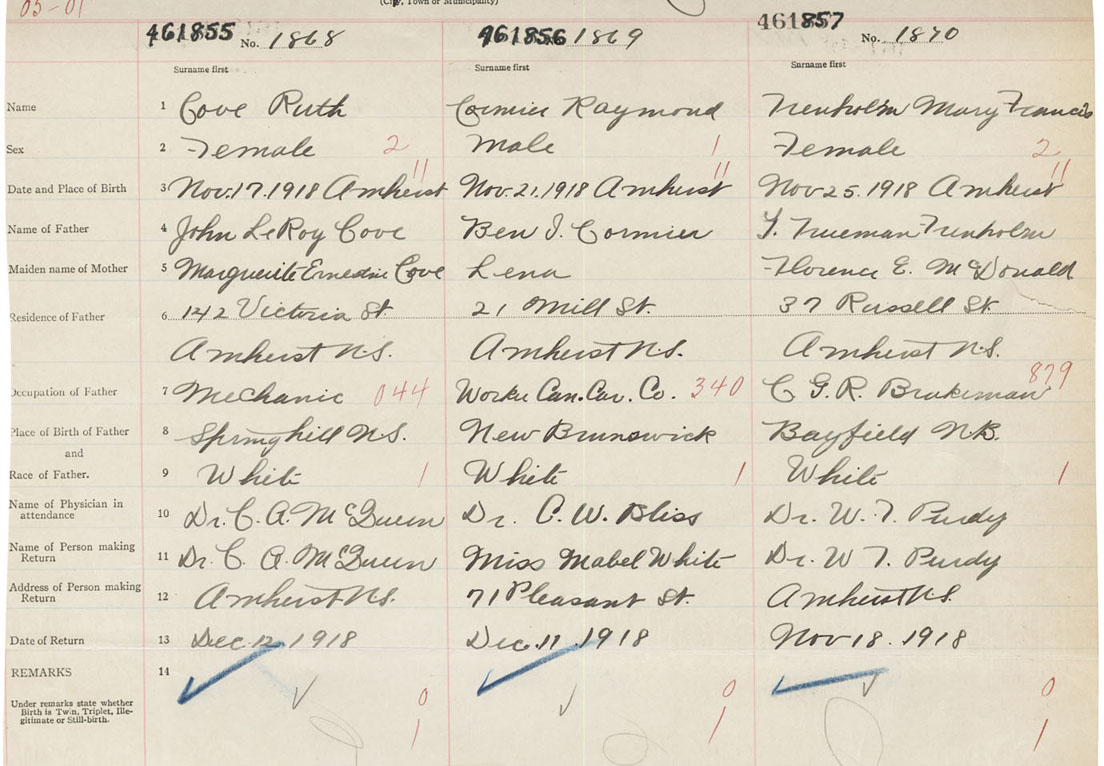 05-01
(City, Town or Municipality)
461855 No. 1868 461856 1869 461857 No. 1870
Surname first Surname first Surname first
Name 1 Cove Ruth Cormier Raymond Trenholm Mary Francis
Sex 2 Female 2 Male 1 Female 2
11 11 11
Date and Place of Birth 3 Nov. 17. 1918 Amherst Nov. 21. 1918 Amherst Nov 25. 1918 Amherst
Name of Father 4 John LeRoy Cove Ben J. Cormier Trueman Trenholm
Maiden name of Mother 5 Marguerite Ernestine Cove Lena Florence E. McDonald
Residence of Father 6 142 Victoria St. 21 Mill St. 37 Russell St.
Amherst N.S. Amherst N.S. Amherst N.S.
Occupation of Father 7 Mechanic 044 Worker Can. Car. Co. 340 C G. R. Brakeman 879
Place of Birth of Father 8 Springhill N.S. New Brunswick Bayfield N.B.
and
Race of Father. 9 White 1 White 1 White 1
Name of Physician in
attendance 10 Dr. C. A. McQueen Dr. C. W. Bliss Dr. W. T. Purdy
Name of Person making
Return 11 Dr. C. A. McQueen Miss Mabel White Dr. W T. Purdy
Address of Person making
Return 12 Amherst N.S. 71 Pleasant St. Amherst N.S.
Date of Return 13 Dec. 12, 1918 Dec. 11. 1918 Nov 18. 1918
REMARKS 14
Under remarks state whether
Birth is Twin, Triplet, Ille-
gitimate or Still-birth.
0 0 0
1 1 1